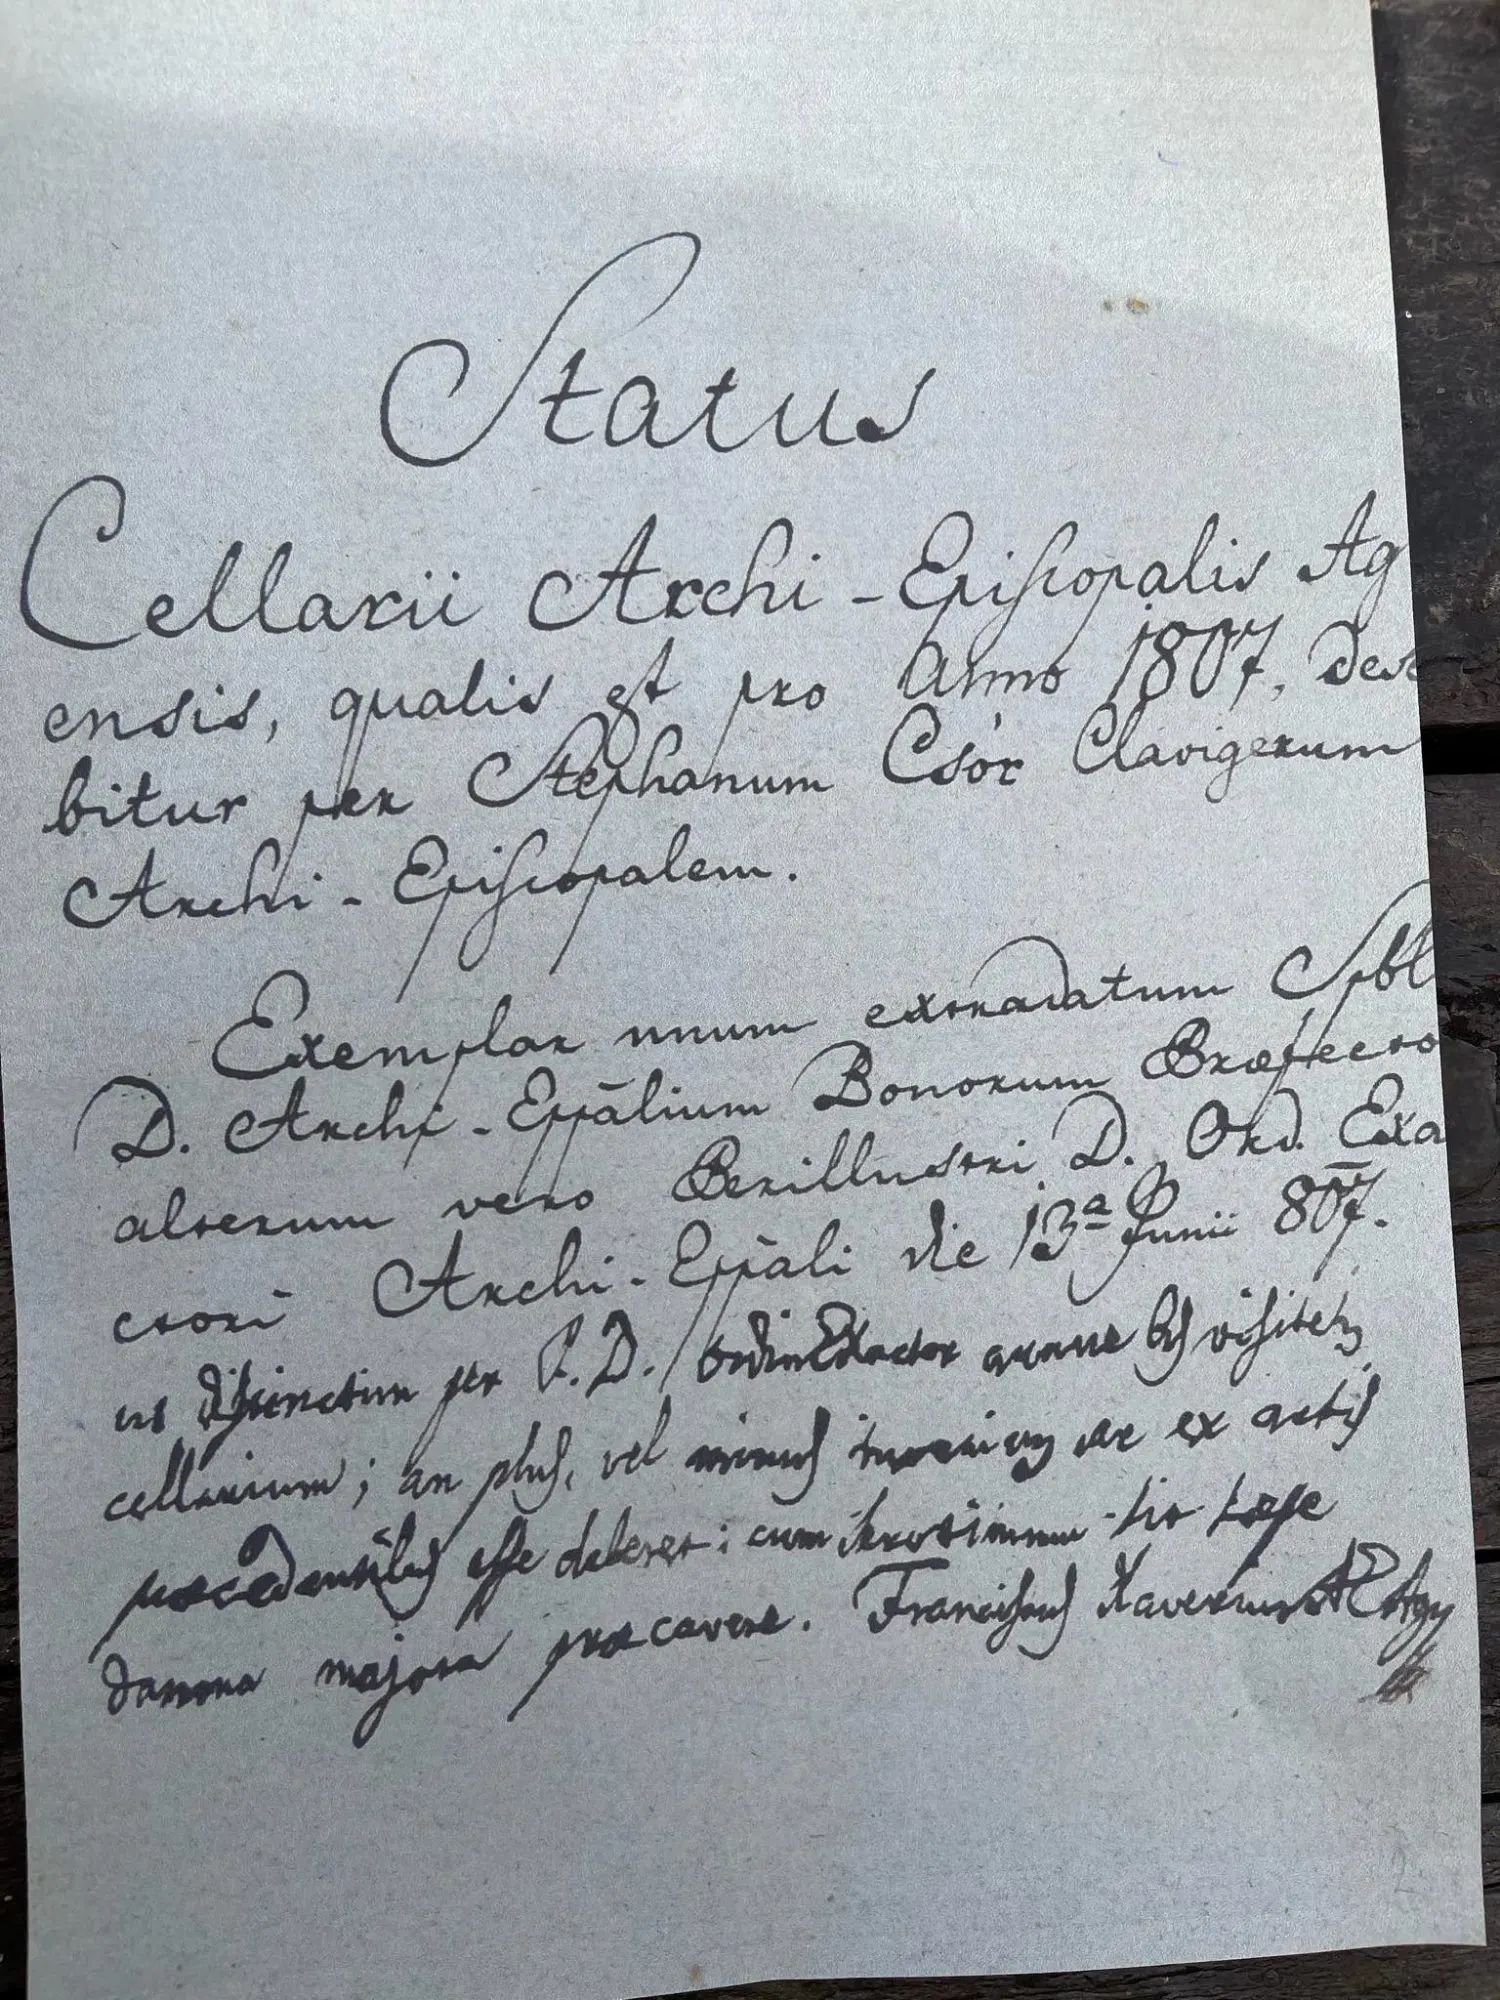 Status
Cellarii Archi-Episcopalis Ag
ensis, qualis est pro Anno 1807, des
bitur per Stephanum Csór Clavigerum
Archi-Episcopalem.
Exemplar unum extradatum Spbl
D. Archi-Eppālium Bonorum Præfecto
alterum vero Perillustri D. Ord. Exa
ctori Archi-Eppāli die 13ª Junii 807.
ut distinctim per P. D. ordin Exactor
cellarium; an plus, vel minus ex actis
præcedentibus esse deberet; cum
damna majora præcavere. Franciscus Xaverius